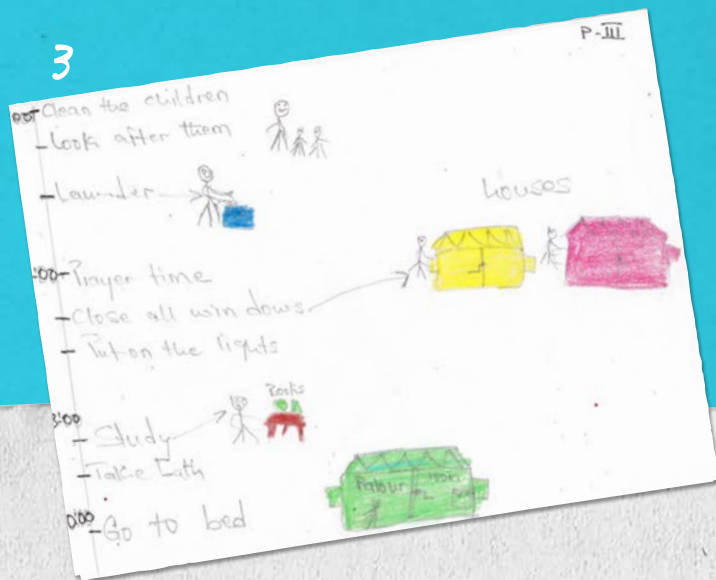 3
P-III
Clean the children
Look after them
Launder
Houses
:00 Prayer time
Close all windows
Put on the lights
Books
:00
Study
Take bath
Palour
0:00
Go to bed